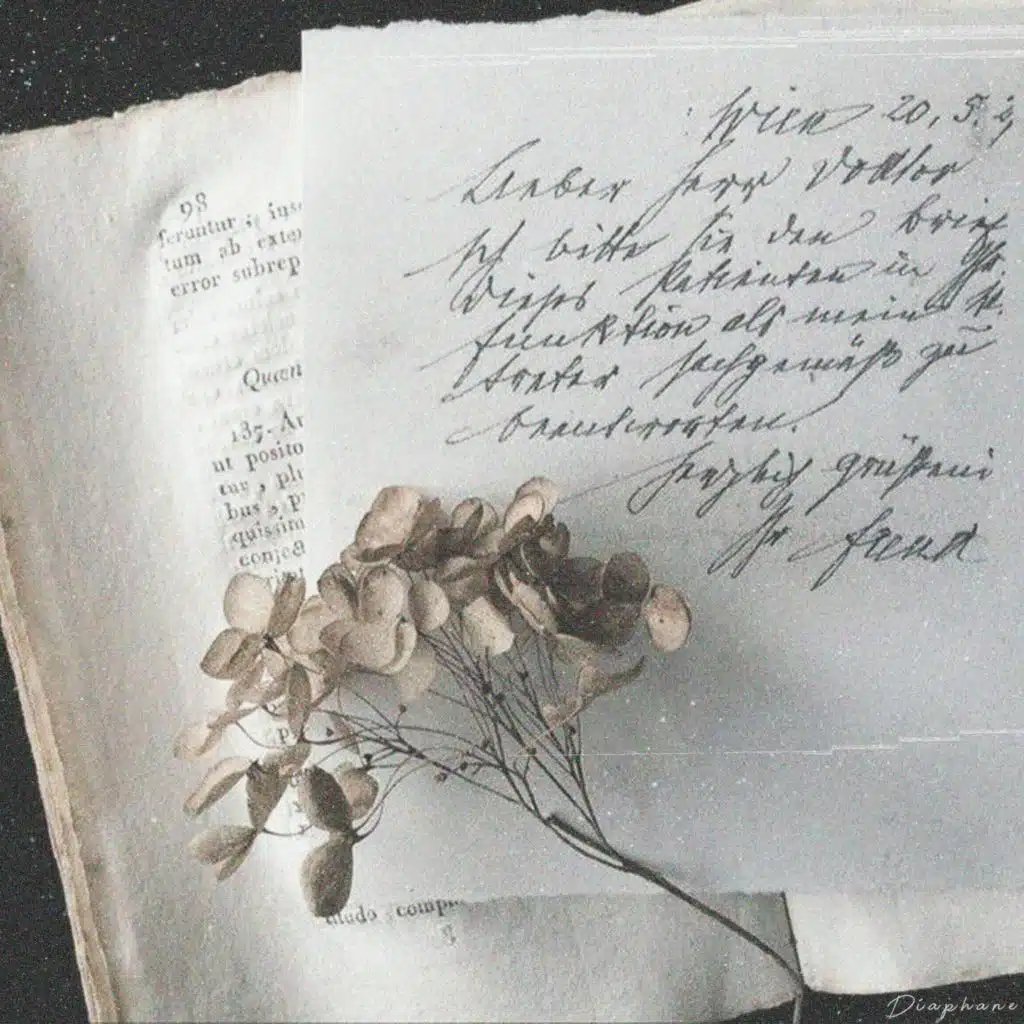 98
feruntur ; ins
tum ab exte
error subrep
Quæn
137. Au
ut posito
tur , plu
bus , p
quissim
conjea
modo comp
g
Wien 20, 5.
Lieber Herr Doktor
Ich bitte Sie den Brief
dieses Patienten in Ihr.
Funktion als mein
treter sachgemäß zu
beantworten.
Herzlich grüßend
Ihr Freud
Diaphane